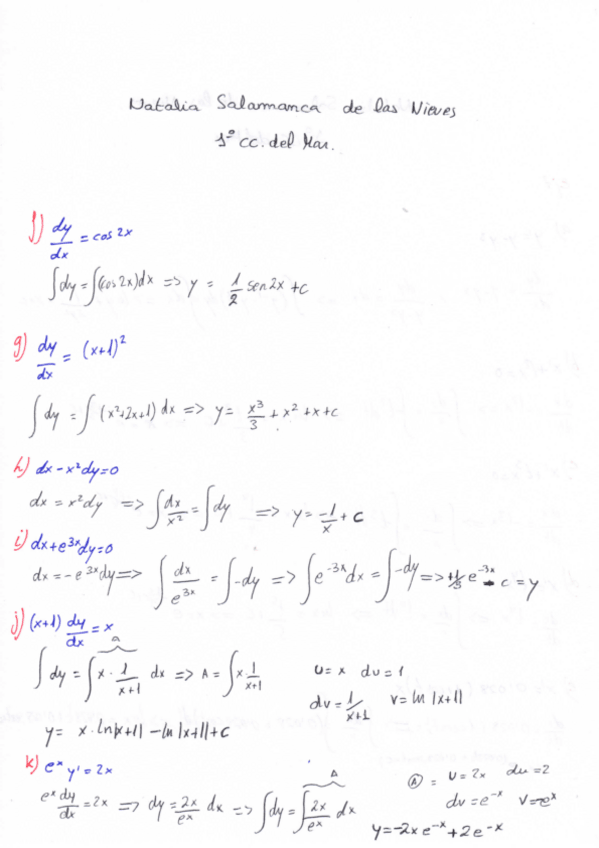 Natalia Salamanca de las Nieves
1º CC. del Mar.
f) dy/dx = cos 2x
∫dy = ∫(cos 2x) dx => y = 1/2 sen 2x + c
g) dy/dx = (x+1)²
∫dy = ∫(x²+2x+1) dx => y = x³/3 + x² + x + c
h) dx - x²dy = 0
dx = x²dy => ∫dx/x² = ∫dy => y = -1/x + c
i) dx + e^3x dy = 0
dx = -e^3x dy => ∫dx/e^3x = ∫-dy => ∫e^-3x dx = ∫-dy => +1/3 e^-3x - c = y
j) (x+1) dy/dx = x
A
∫dy = ∫x · 1/x+1 dx => A = ∫x 1/x+1 u = x du = 1
dv = 1/x+1 v = ln |x+1|
y = x · ln|x+1| - ln|x+1| + c
k) e^x y' = 2x
e^x dy/dx = 2x => dy = 2x/e^x dx => ∫dy = ∫2x/e^x dx
A
Ⓐ = u = 2x du = 2
dv = e^-x v = -e^x
y = -2x e^-x + 2e^-x